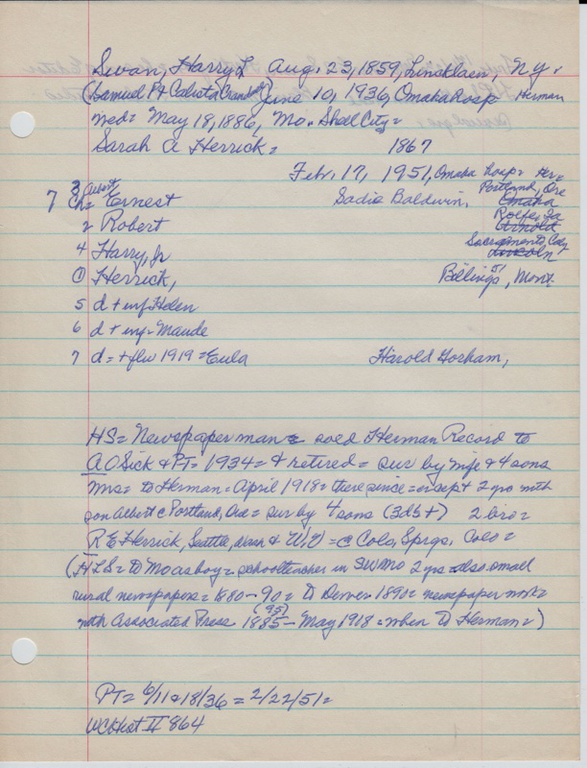 Swan, Harry L Aug. 23, 1859, Lincklaen, N.Y.
(Samuel P + Calista Crandall) June 10, 1936, Omaha Hosp Herman
Med= May 18, 1886, Mo. Shell City=
Sarah A Herrick= 1867
Feb. 17, 1951, Omaha Hosp= Her=
7 3 ch= Albert Ernest Sadie Baldwin, Portland, Ore
Omaha
2 Robert Rolfe, Ia
Arnold
4 Harry, Jr Sacramento, Caly
Lincoln
① Herrick, Billings, Mont. 51
5 d + inf= Helen
6 d + inf= Maude
7 d= + flu 1919 = Eula Harold Gorham,
HS= Newspaper man = sold Herman Record to
A O Sick + PT= 1934= + retired = sur by wife + 4 sons
Mrs= to Herman= April 1918= there since= except 2 yrs with
son Albert c Portland, Ore = sur by 4 sons (3db+) 2 bro=
R E Herrick, Seattle, Wash + W, V = c Colo, Sprgs, Colo=
(HLS= to Mo as boy= schoolteacher in SW Mo 2 yrs= also small
rural newspapers= 1880-90= to Denver 1890= newspaper work=
with Associated Press 1885 (95) - May 1918 = when to Herman=)
PT= 6/11 + 18/36 = 2/22/51=
WCoHist II 864